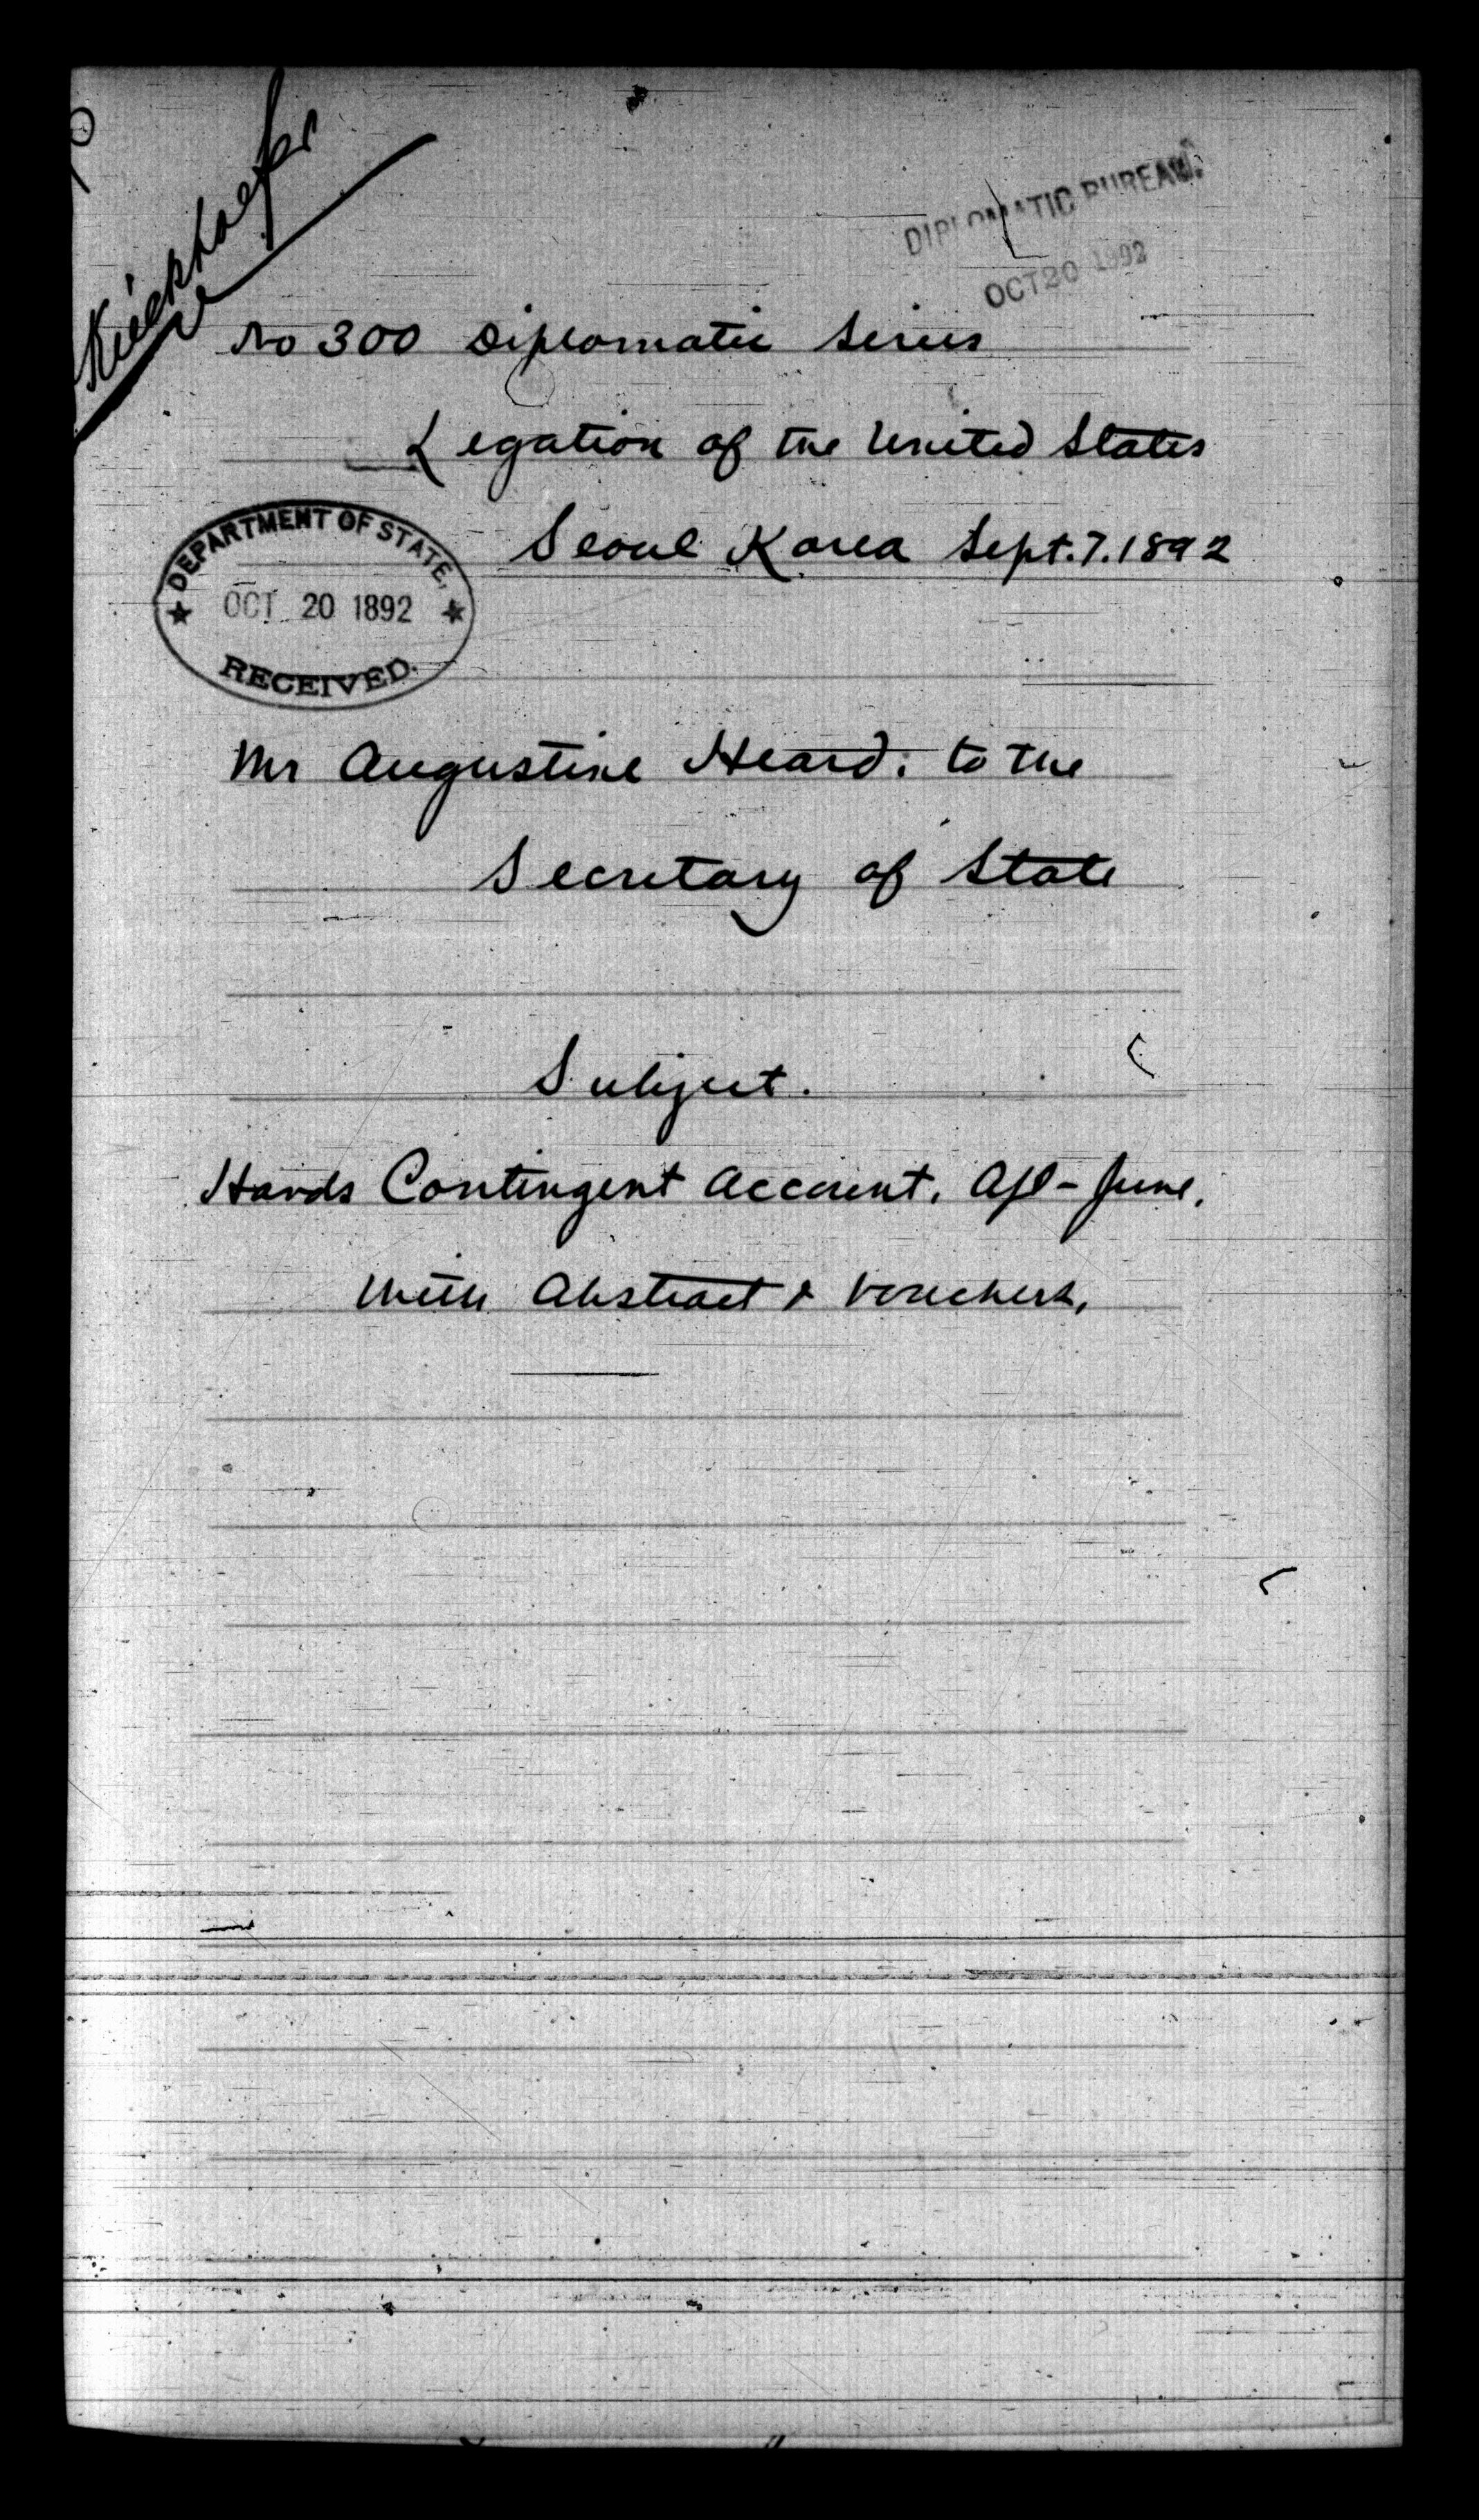 Kieckhoefer
DIPLOMATIC BUREAU.
OCT 20 1892
No 300 Diplomatic Series
Legation of the United States
Seoul Korea Sept. 7. 1892
DEPARTMENT OF STATE,
OCT 20 1892
RECEIVED.
Mr Augustine Heard: to the
Secretary of State
Subject.
Contingent Account. Apl - June.
With Abstract & Vouchers.